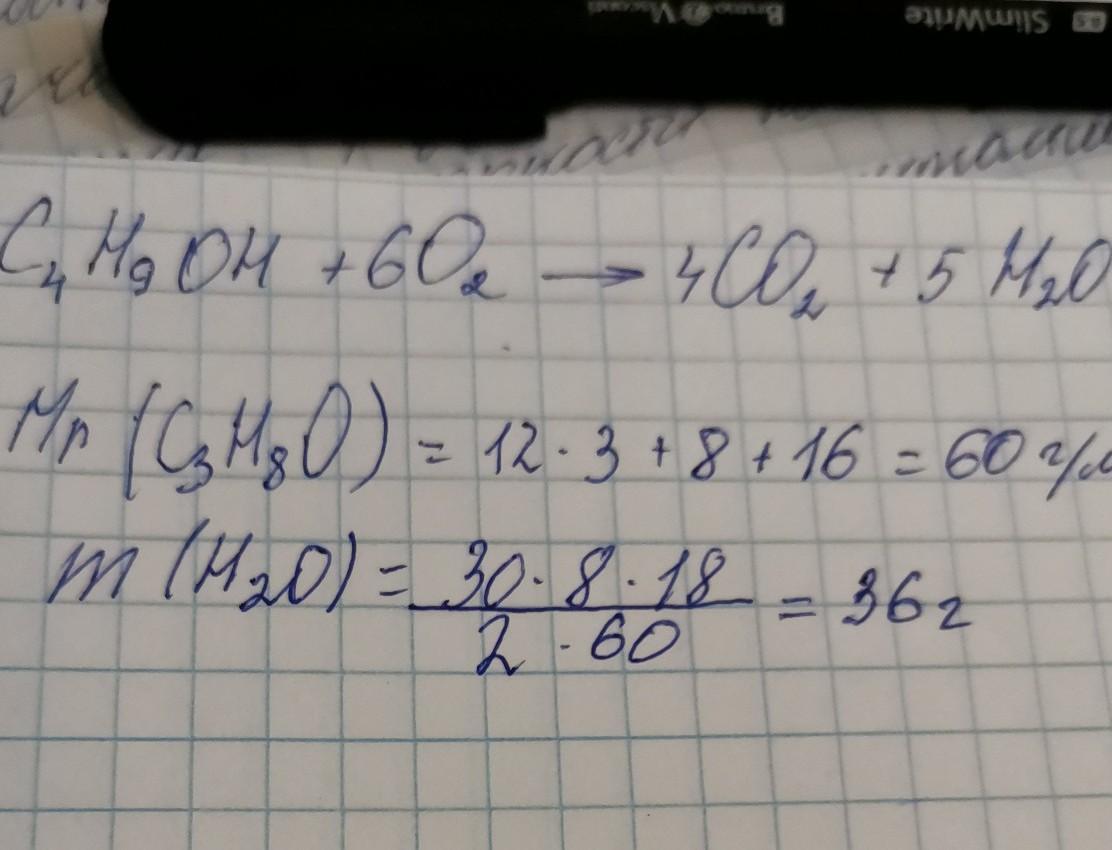 SlimWrite
Bruno Visconti
C₄H₉OH + 6O₂ → 4CO₂ + 5H₂O
Mr (C₃H₈O) = 12 · 3 + 8 + 16 = 60 г/м
m (H₂O) = 30 · 8 · 18 / 2 · 60 = 36 г